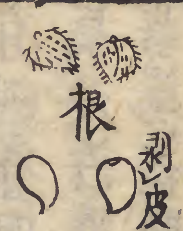 根
剥皮